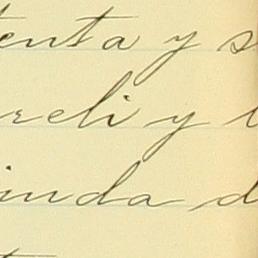 enta y s
reli y
inda d